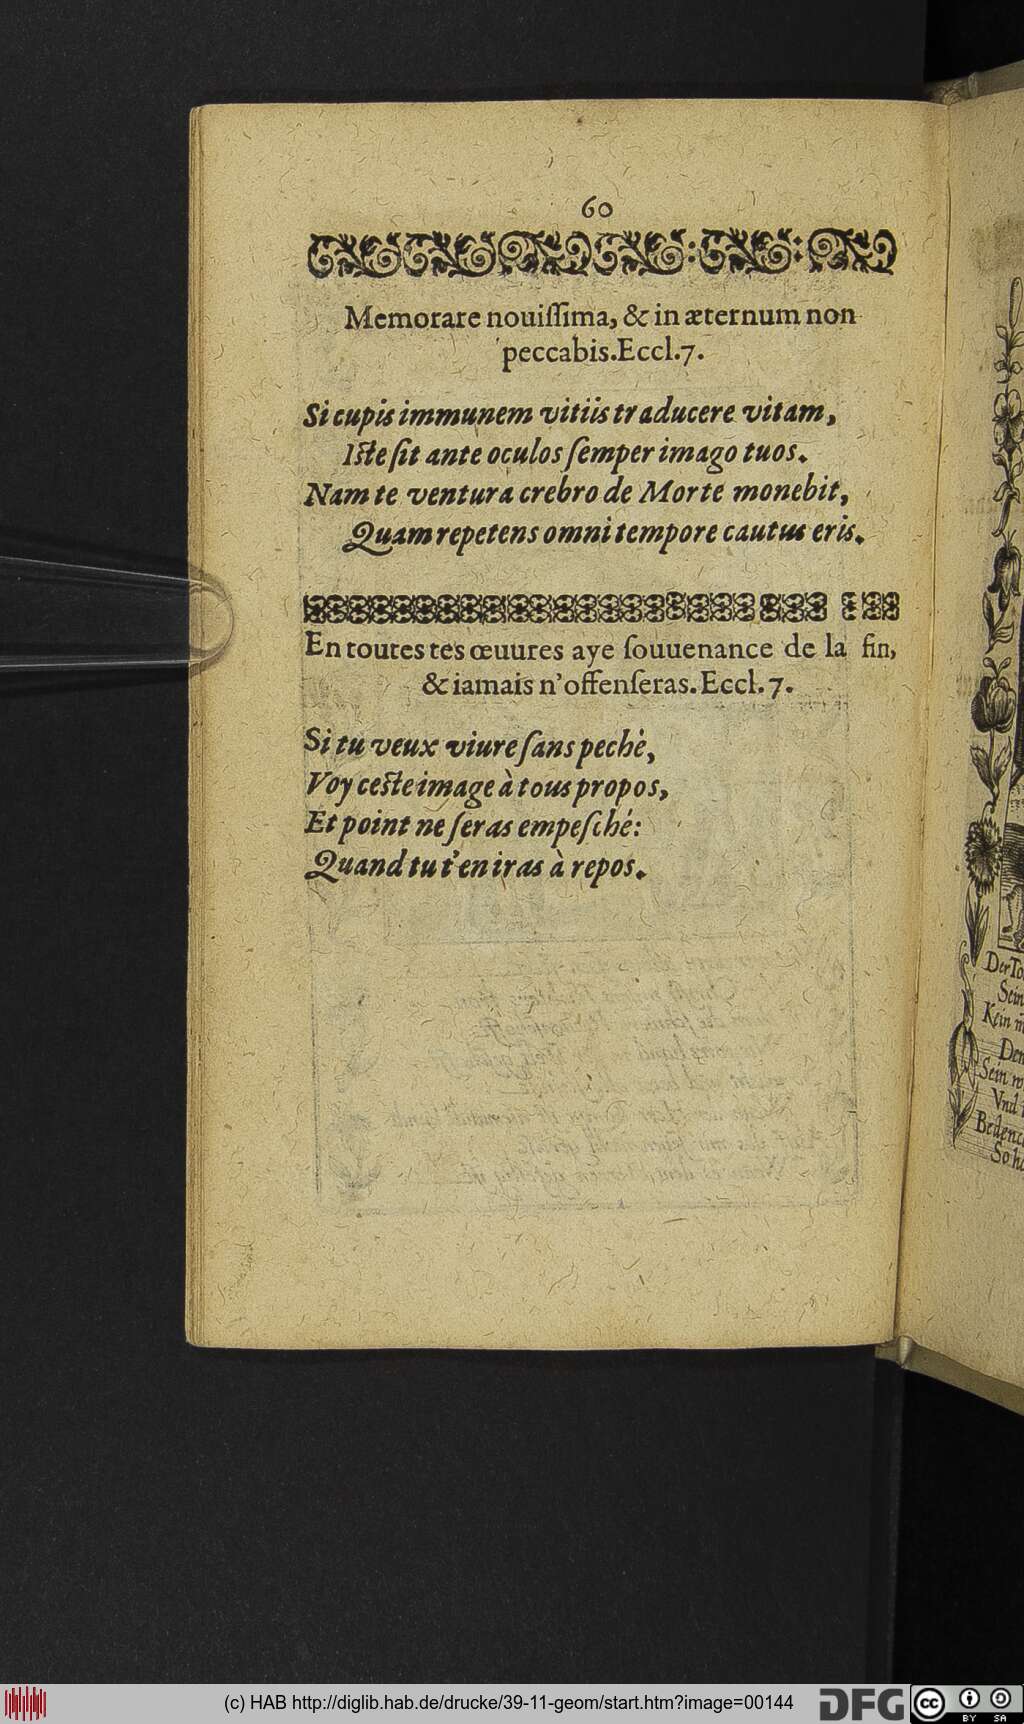 60
Memorare nouiſſima, & in æternum non
peccabis. Eccl. 7.
Si cupis immunem vitiis traducere vitam,
Iste ſit ante oculos ſemper imago tuos.
Nam te ventura crebro de Morte monebit,
Quam repetens omni tempore cautus eris.
En toutes tes œuures aye ſouuenance de la fin,
& iamais n'offenſeras. Eccl. 7.
Si tu veux viure ſans peché,
Voy ceste image à tous propos,
Et point ne ſeras empeſché:
Quand tu t'en iras à repos.
Der To
Sein
Kein
Den
Sein w
Vnd
Bedenc
So ha
(c) HAB http://diglib.hab.de/drucke/39-11-geom/start.htm?image=00144
DFG
cc
BY SA